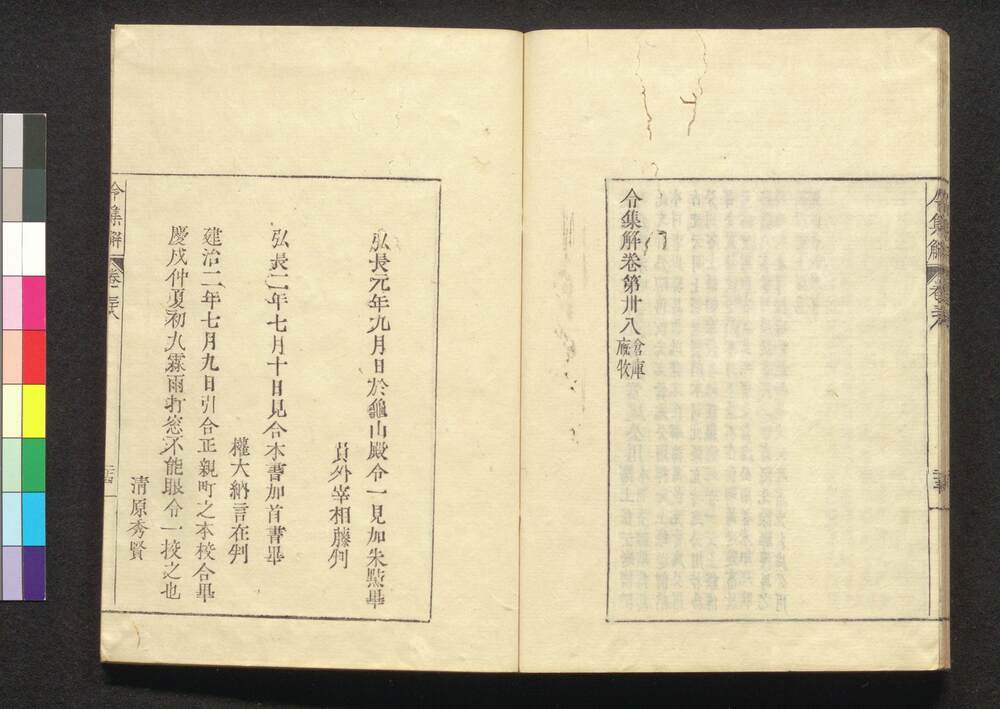 令集解卷第卅八 倉庫
廐牧
弘長元年九月日於龜山殿令一見加朱點畢
員外宰相藤判
弘長二年七月十日見合本書加首書畢
權大納言在判
建治二年七月九日引合正親町之本校合畢
慶戌仲夏初九霖雨打窓不能眠令一挍之也
清原秀賢
令集解